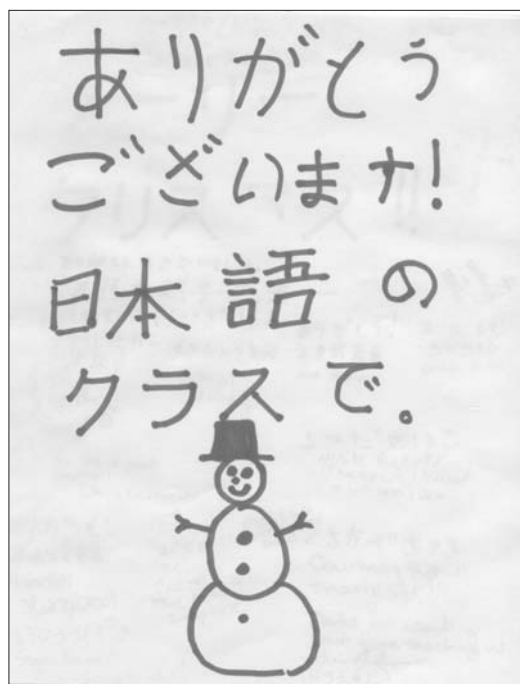 ありがとう
ございます!
日本語 の
クラス で。